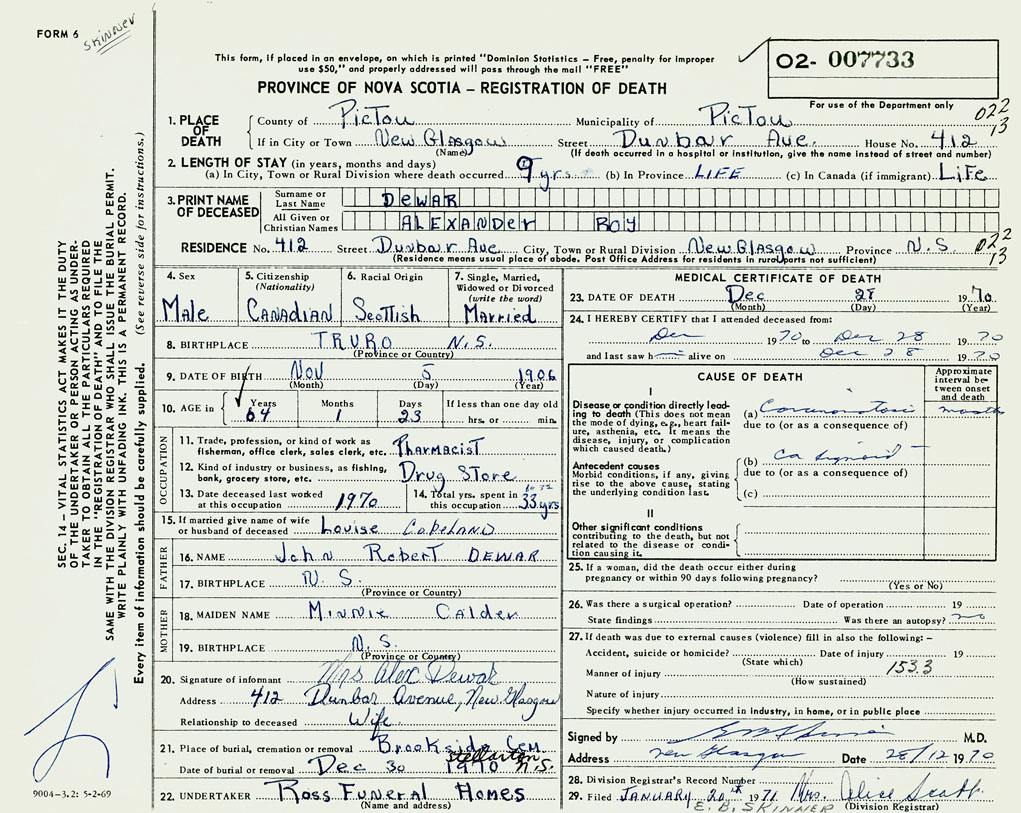 FORM 6
SKINNER
This form, if placed in an envelope, on which is printed "Dominion Statistics – Free, penalty for improper
use $50," and properly addressed will pass through the mail "FREE"
PROVINCE OF NOVA SCOTIA – REGISTRATION OF DEATH
O2- 007733
For use of the Department only
022
13
1. PLACE OF DEATH
County of PicTou Municipality of PicTou
If in City or Town New Glasgow Street Dunbar Ave. House No. 412
(Name) (If death occurred in a hospital or institution, give the name instead of street and number)
2. LENGTH OF STAY (in years, months and days)
(a) In City, Town or Rural Division where death occurred 9 yrs. (b) In Province LIFE (c) In Canada (if immigrant) LiFe
3. PRINT NAME OF DECEASED
Surname or Last Name DEWAR
All Given or Christian Names ALEXANDER ROY
RESIDENCE No. 412 Street Dunbar Ave City, Town or Rural Division New Glasgow Province N.S. 022
13
(Residence means usual place of abode. Post Office Address for residents in rural parts not sufficient)
4. Sex Male
5. Citizenship (Nationality) CANADIAN
6. Racial Origin Scottish
7. Single, Married, Widowed or Divorced (write the word) Married
8. BIRTHPLACE TRURO N.S.
(Province or Country)
9. DATE OF BIRTH NOV 5 1906
(Month) (Day) (Year)
10. AGE in Years 64 Months 1 Days 23 If less than one day old hrs. or min.
OCCUPATION
11. Trade, profession, or kind of work as
fisherman, office clerk, sales clerk, etc. PharmacisT
12. Kind of industry or business, as fishing,
bank, grocery store, etc. Drug Store
13. Date deceased last worked
at this occupation 1970
14. Total yrs. spent in
this occupation 33 yrs
15. If married give name of wife
or husband of deceased Louise Copeland
FATHER
16. NAME John Robert DEWAR
17. BIRTHPLACE N.S.
(Province or Country)
MOTHER
18. MAIDEN NAME Minnie Calder
19. BIRTHPLACE N.S.
(Province or Country)
20. Signature of informant Mrs Alex Dewar
Address 412 Dunbar Avenue, New Glasgow
Relationship to deceased Wife
21. Place of burial, cremation or removal Brookside Cem.
Stellarton N.S.
Date of burial or removal Dec 30 1970
22. UNDERTAKER Ross Funeral Homes
(Name and address)
MEDICAL CERTIFICATE OF DEATH
23. DATE OF DEATH Dec 28 1970
(Month) (Day) (Year)
24. I HEREBY CERTIFY that I attended deceased from:
Dec 1970 to Dec 28 1970
and last saw h alive on Dec 28 1970
CAUSE OF DEATH
Approximate interval between onset and death
I
Disease or condition directly leading
to death (This does not mean
the mode of dying, e.g., heart failure,
asthenia, etc. It means the
disease, injury, or complication
which caused death.)
(a) months
due to (or as a consequence of)
Antecedent causes
Morbid conditions, if any, giving
rise to the above cause, stating
the underlying condition last.
(b) Ca sigmoid
due to (or as a consequence of)
(c)
II
Other significant conditions
contributing to the death, but not
related to the disease or condition
causing it.
25. If a woman, did the death occur either during
pregnancy or within 90 days following pregnancy?
(Yes or No)
26. Was there a surgical operation? Date of operation 19
State findings Was there an autopsy? no
27. If death was due to external causes (violence) fill in also the following: –
Accident, suicide or homicide? Date of injury 19
(State which)
Manner of injury 153.3
(How sustained)
Nature of injury
Specify whether injury occurred in industry, in home, or in public place
Signed by M.D.
Address New Glasgow Date 28/12 1970
28. Division Registrar's Record Number
29. Filed JANUARY 20th 1971 Mrs. Alice Scott
E. B. SKINNER (Division Registrar)
SEC. 14 – VITAL STATISTICS ACT MAKES IT THE DUTY
OF THE UNDERTAKER OR PERSON ACTING AS UNDERTAKER
TO OBTAIN ALL THE PARTICULARS REQUIRED
IN THE "REGISTRATION OF DEATH" AND TO FILE THE
SAME WITH THE DIVISION REGISTRAR WHO SHALL ISSUE THE BURIAL PERMIT.
WRITE PLAINLY WITH UNFADING INK. THIS IS A PERMANENT RECORD.
Every item of information should be carefully supplied. (See reverse side for instructions.)
9004-3.2: 5-2-69